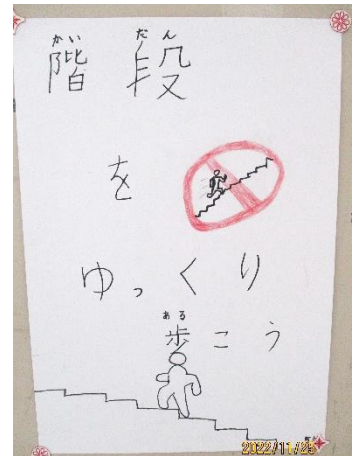 かいだん
階段
を
ゆっくり
ある
歩こう
2022/11/25